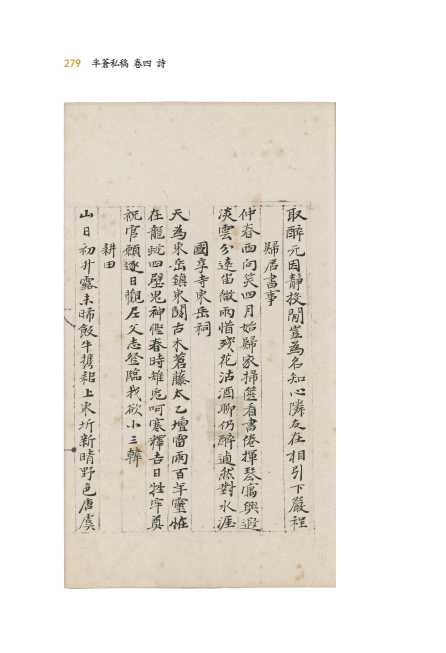 279 半蒼私稿 卷四 詩
取醉元因靜投閒豈為名知心隣友在相引下巖程
歸居書事
仲春西向笑四月始歸家掃篋看書倦揮琴寓興遐
淡雲分遠岫微雨惜殘花沽酒聊仍醉適然對水涯
國享寺東岳祠
天為東岳鎮東關古木蒼藤太乙壇雷雨百年靈恠
在龍蛇四壁鬼神儼春時雄鬼呵寒釋吉日牲牢奠
祝官願逐日觀居父志登臨我欲小三韓
耕田
山日初升露未晞飯牛携耜上東圻新晴野色唐虞